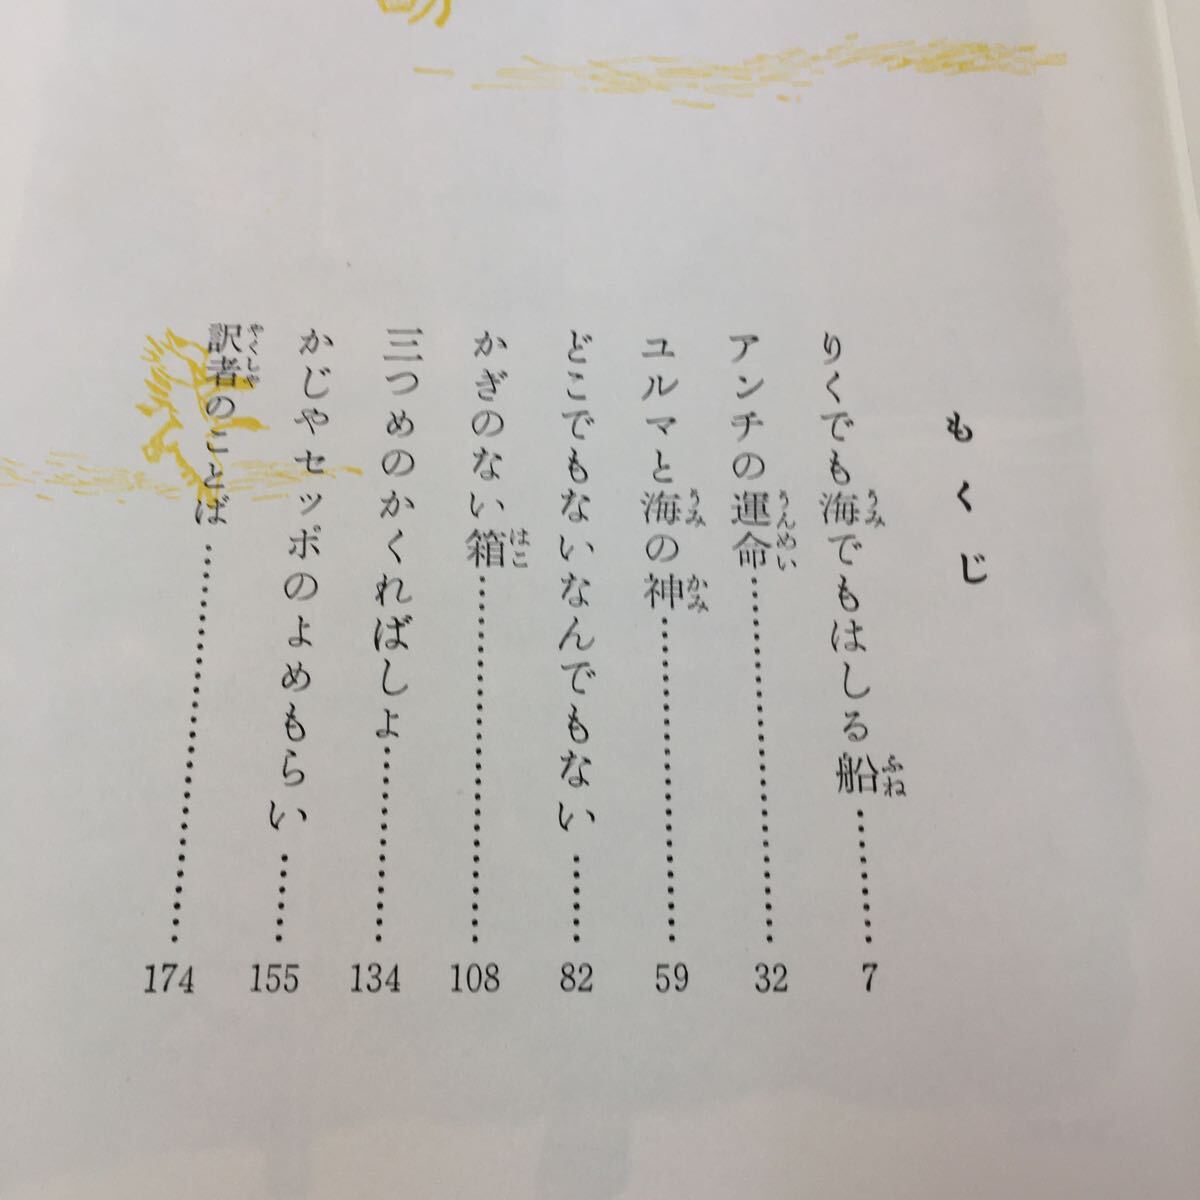 もくじ
りくでも海でもはしる船……………7
アンチの運命……………………………32
ユルマと海の神…………………………59
どこでもないなんでもない………82
かぎのない箱……………………………108
三つめのかくればしょ………………134
かじやセッポのよめもらい………155
訳者のことば……………………………174